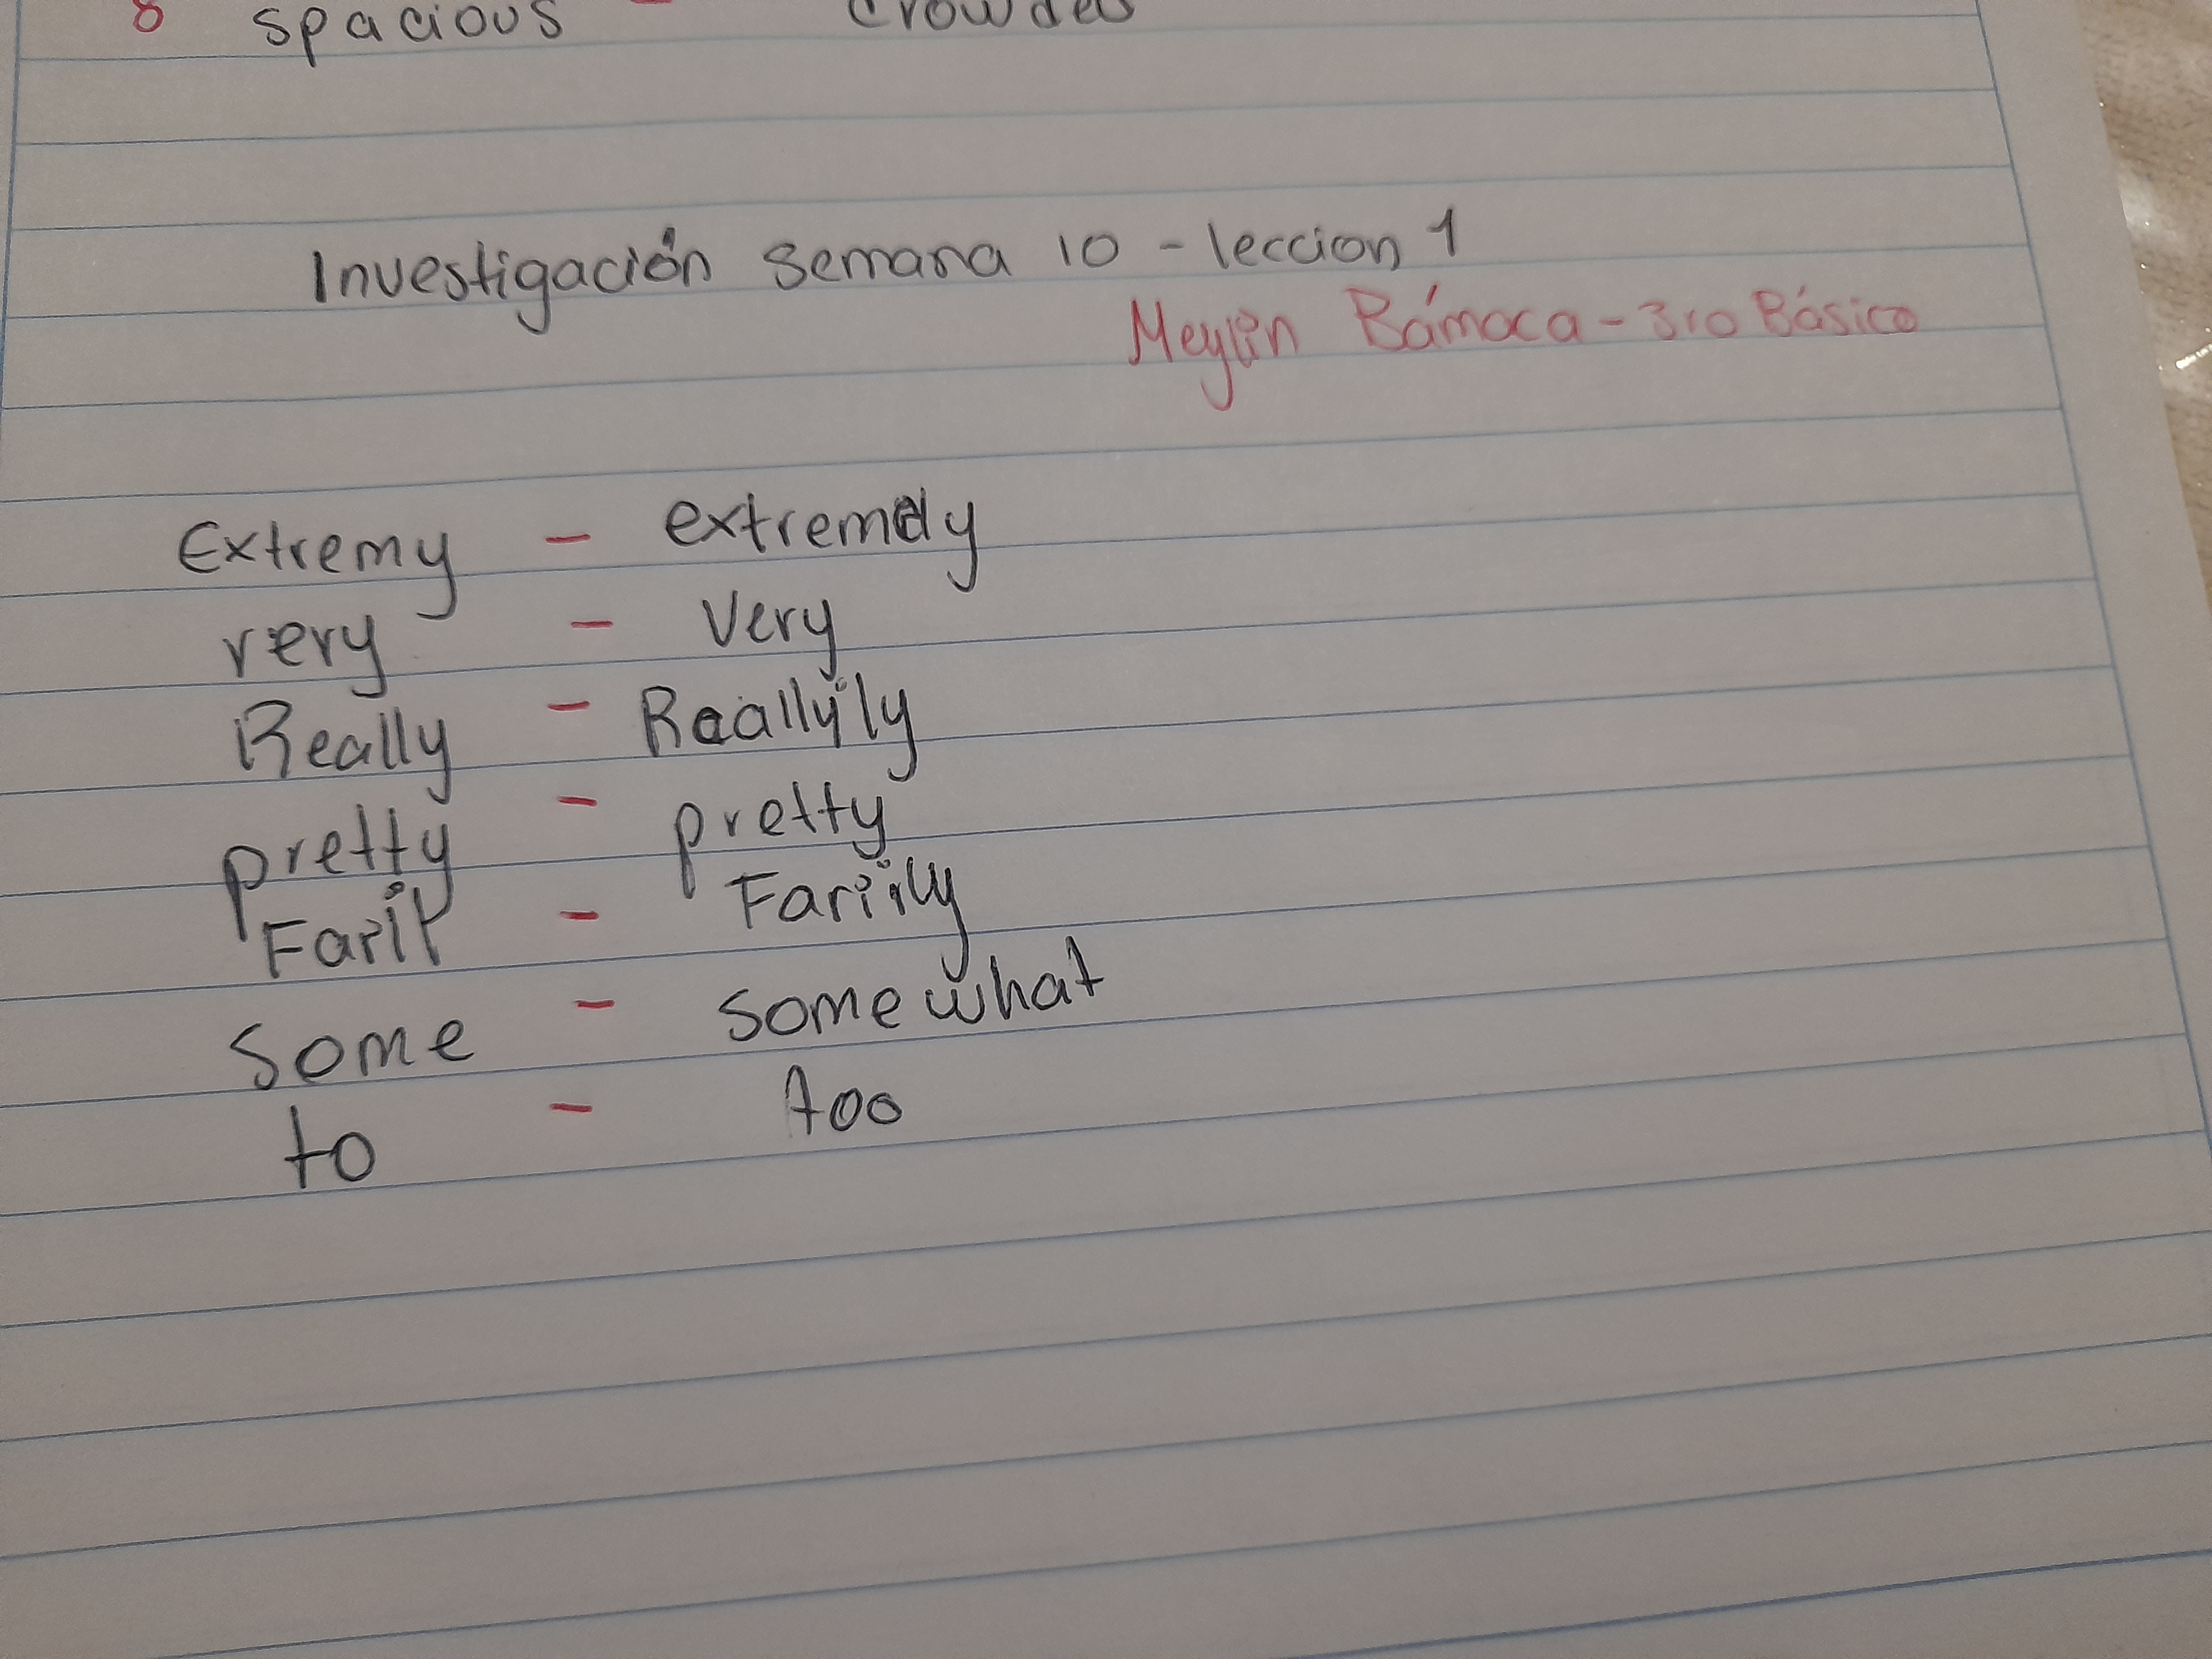 8 spacious - crowded
Investigación semana 10 - leccion 1
Meylin Bámaca - 3ro Básico
Extremy - extremely
very - Very
Really - Reallyly
pretty - pretty
- Fariily
Some - somewhat
to - too